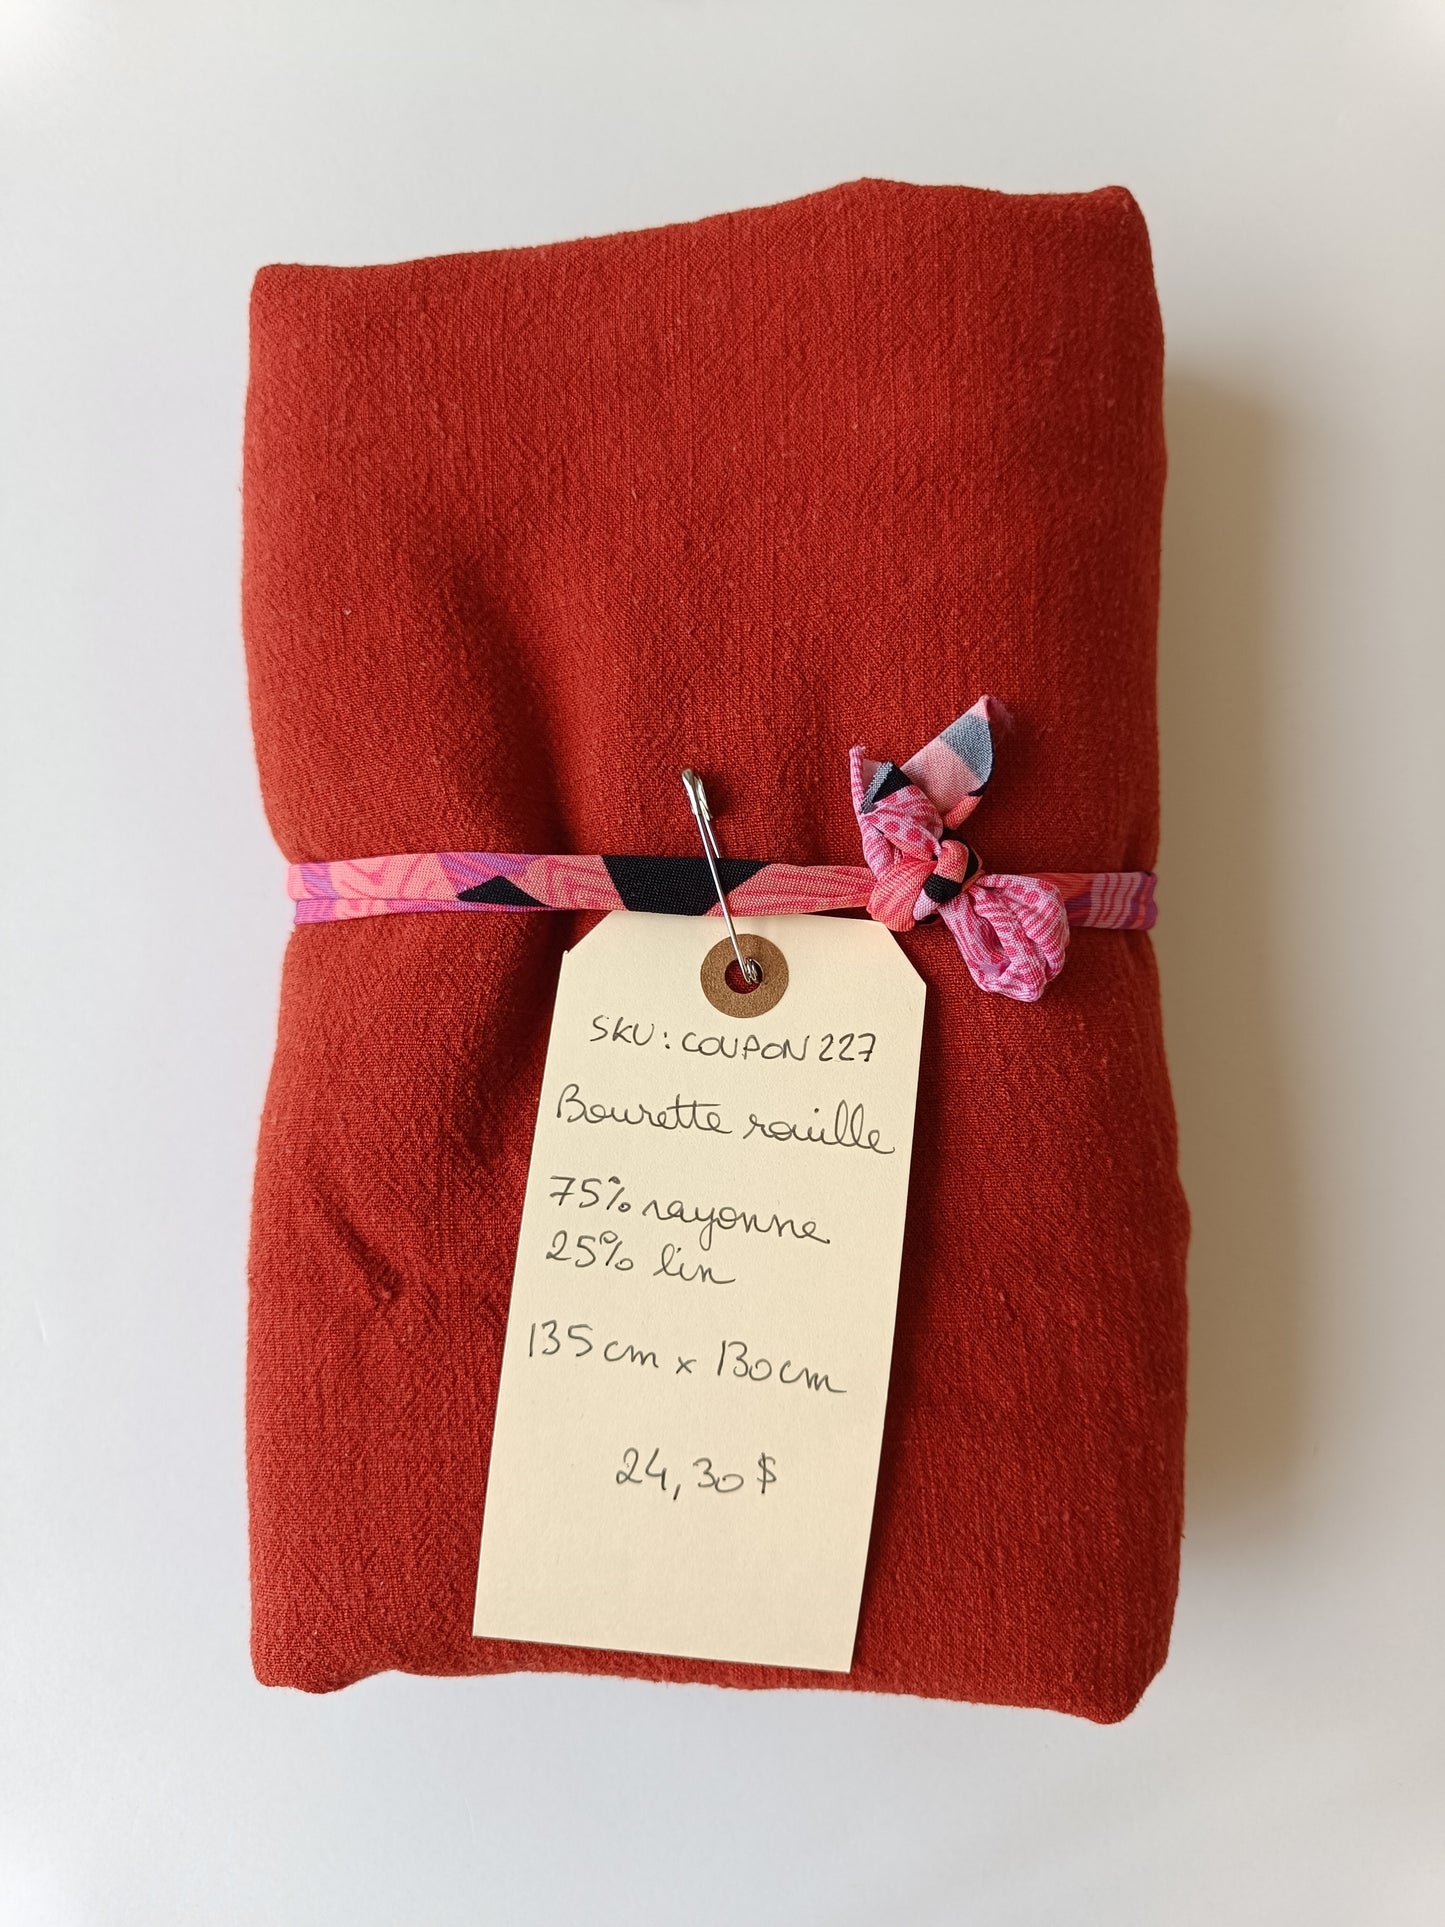 SKU : COUPON 227
Bourette rouille
75% rayonne
25% lin
135 cm x 130 cm
24,30 $